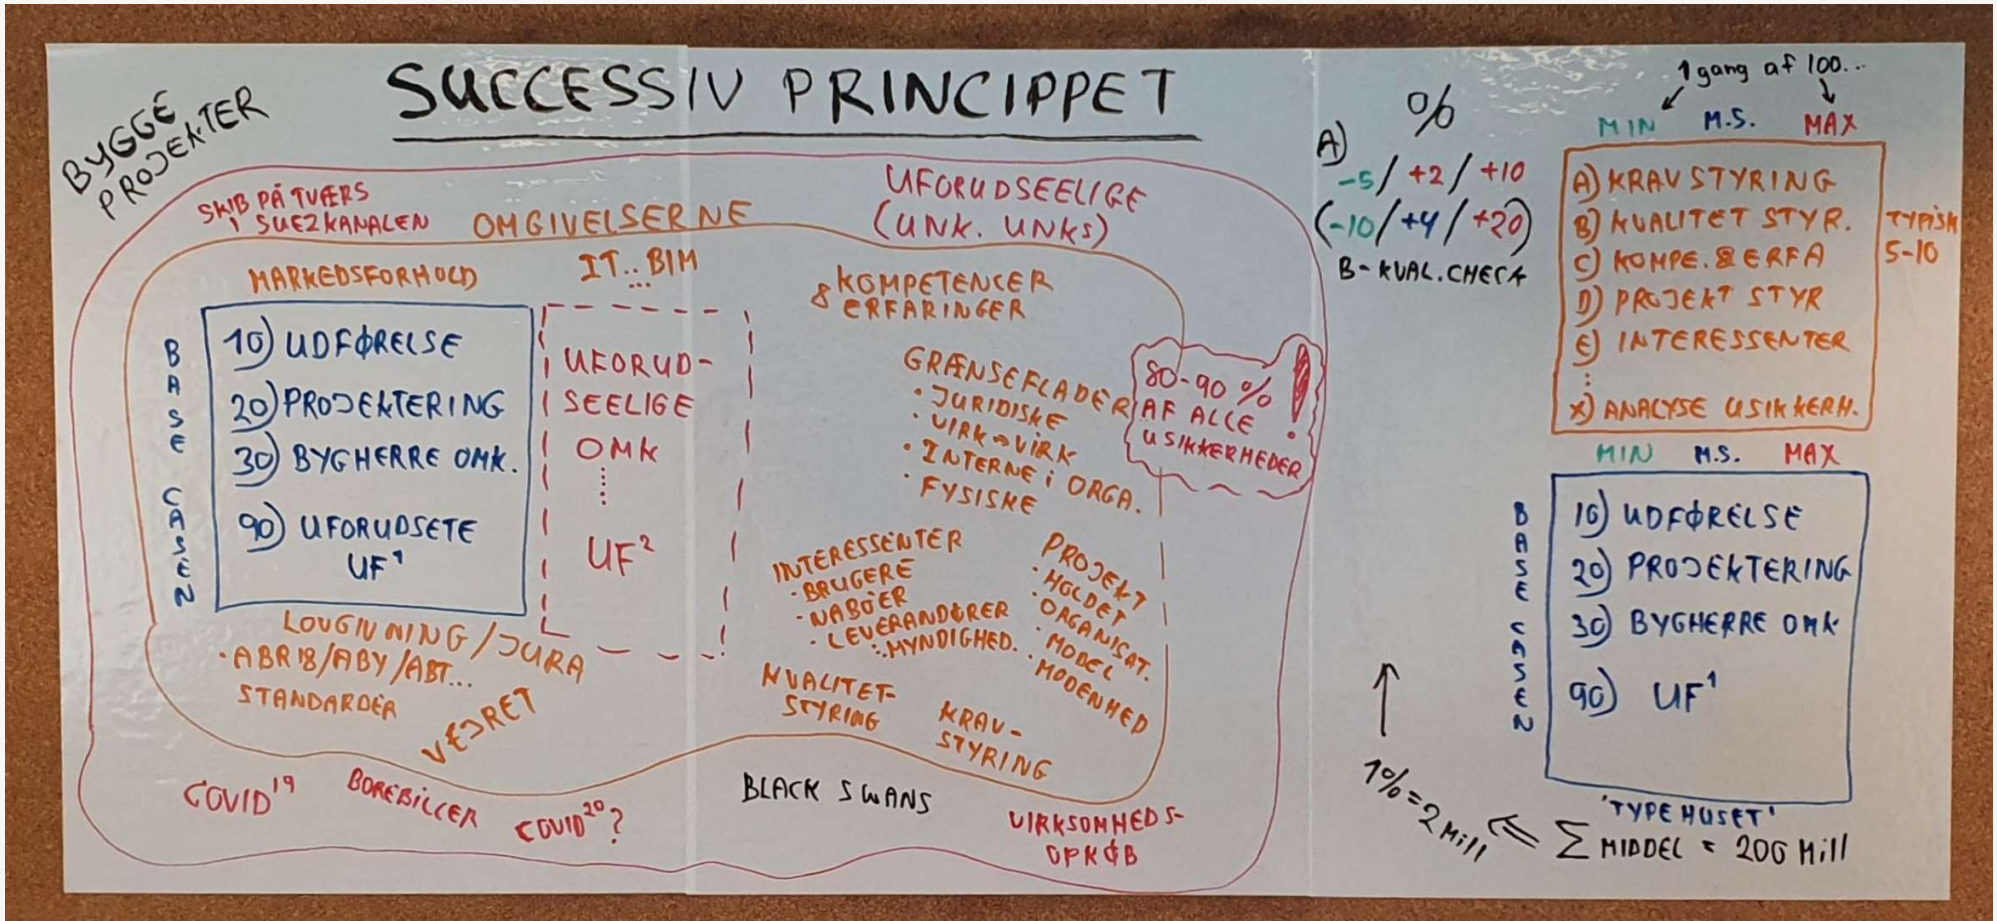 BYGGE
PROJEKTER
SUCCESSIV PRINCIPPET
SKIB PÅ TVÆRS
I SUEZKANALEN
OMGIVELSERNE
UFORUDSEELIGE
(UNK. UNKS)
MARKEDSFORHOLD
IT.. BIM
...
KOMPETENCER
& ERFARINGER
BASE CASEN
10) UDFØRELSE
20) PROJEKTERING
30) BYGHERRE OMK.
90) UFORUDSETE
UF¹
UFORUD-
SEELIGE
OMK
.....
UF²
GRÆNSEFLADER
• JURIDISKE
• VIRK→VIRK
• INTERNE i ORGA.
• FYSISKE
80-90 %
AF ALLE
USIKKERHEDER
!
INTERESSENTER
• BRUGERE
• NABOER
• LEVERANDØRER
∴ MYNDIGHED.
PROJEKT
• HOLDET
• ORGANISAT.
• MODEL
• MODENHED
LOVGIVNING/JURA
• ABR18/ABY/ABT...
STANDARDER
VEJRET
KVALITET-
STYRING
KRAV-
STYRING
COVID¹⁹
BOREBILLER
COVID²⁰?
BLACK SWANS
VIRKSOMHEDS-
OPKØB
%
A)
-5/ +2/ +10
(-10/ +4/ +20)
B-KVAL.CHECK
1 gang af 100...
MIN M.S. MAX
A) KRAVSTYRING
B) KVALITET STYR.
C) KOMPE. & ERFA
D) PROJEKT STYR
E) INTERESSENTER
⋮
X) ANALYSE USIKKERH.
TYPISK
5-10
MIN M.S. MAX
BASE CASEN
10) UDFØRELSE
20) PROJEKTERING
30) BYGHERRE OMK
90) UF¹
'TYPEHUSET'
Σ MIDDEL = 200 Mill
⇐
1% = 2 Mill